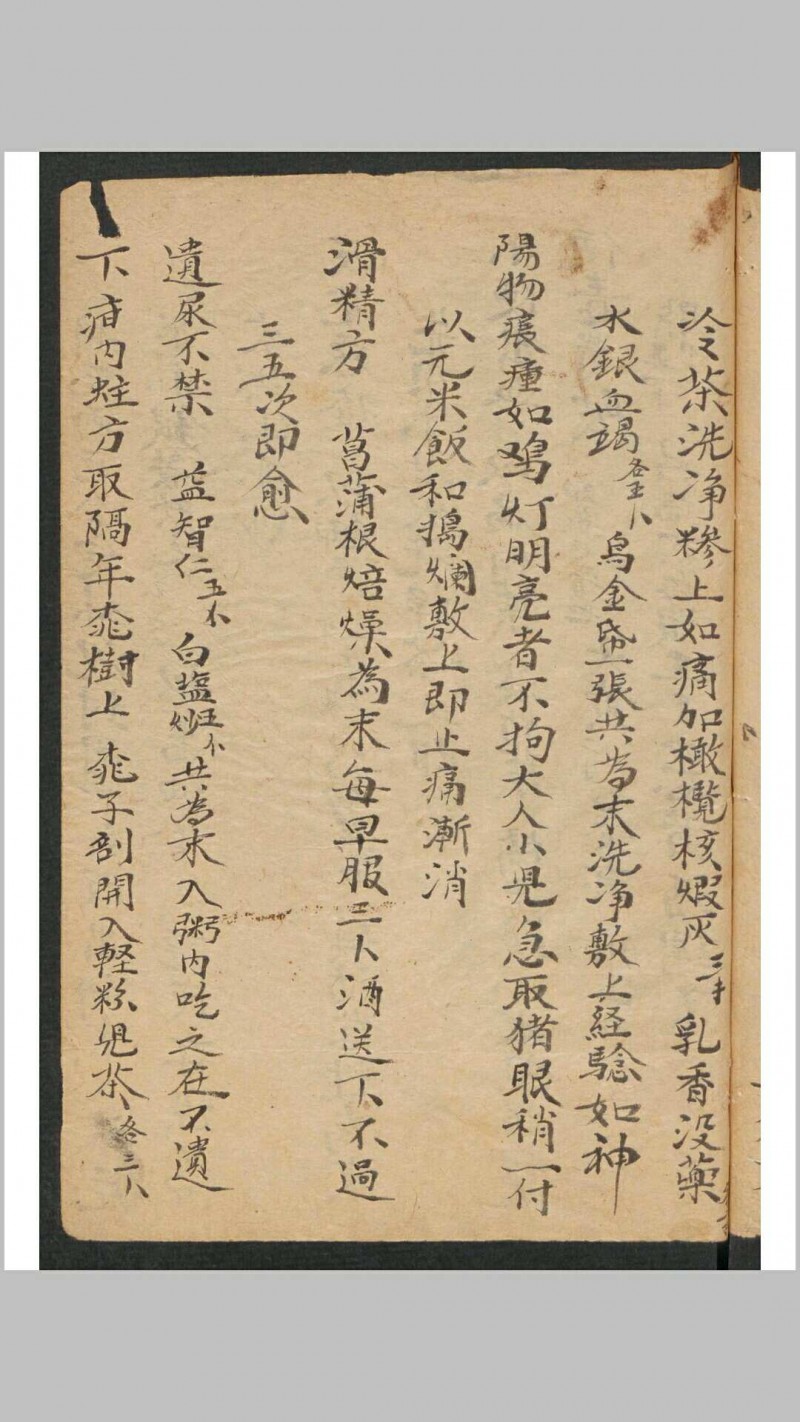 冷茶洗净糁上如痛加橄欖核煅灰三卜乳香没藥
水銀血竭各五卜烏金帋一張共為末洗净敷上経驗如神
陽物痕瘇如鸡灯明亮者不拘大人小児急取猪眼稍一付
以元米飯和搗爛敷上即止痛漸消
滑精方 菖蒲根焙燥為末每早服三卜酒送下不過
三五次即愈
遺尿不禁 益智仁五个白塩炒五个共為末入粥内吃之在不遺
下疳内蛀方取隔年桃樹上桃子剖開入輕粉児茶各三卜